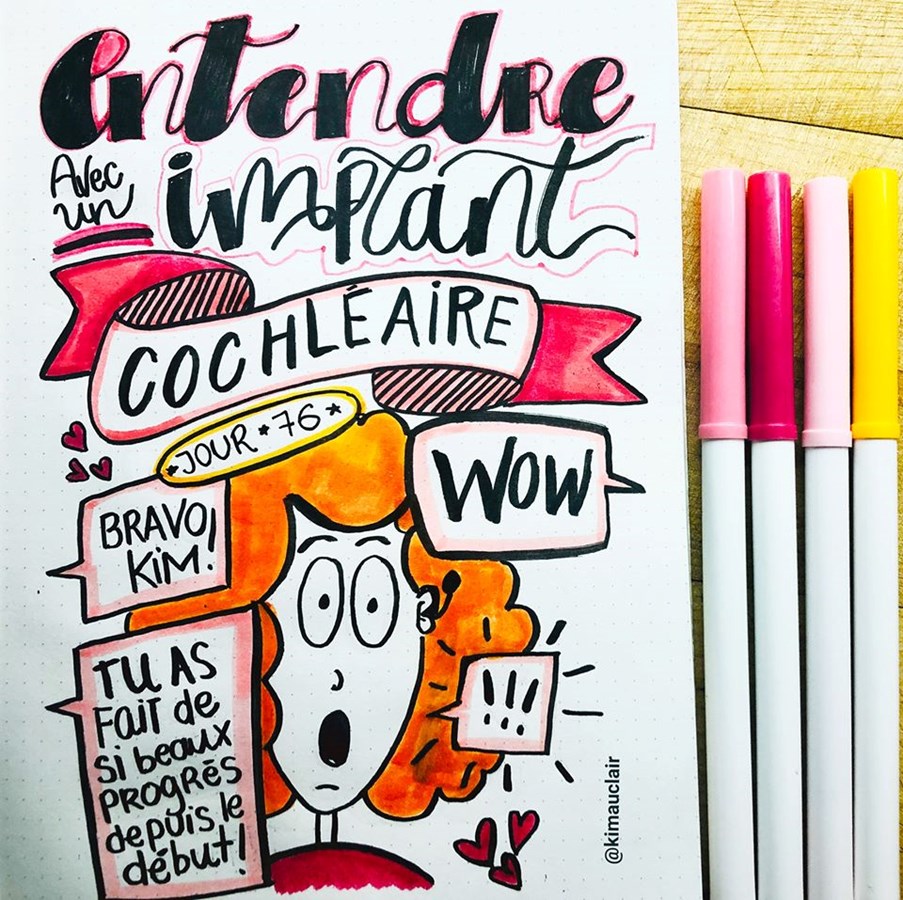 entendre
Avec
un
implant
COCHLÉAIRE
*JOUR *76*
WOW
BRAVO
KIM!
!!!
TU AS
Fait de
si beaux
PROGRÈS
depuis le
début!
@kimauclair